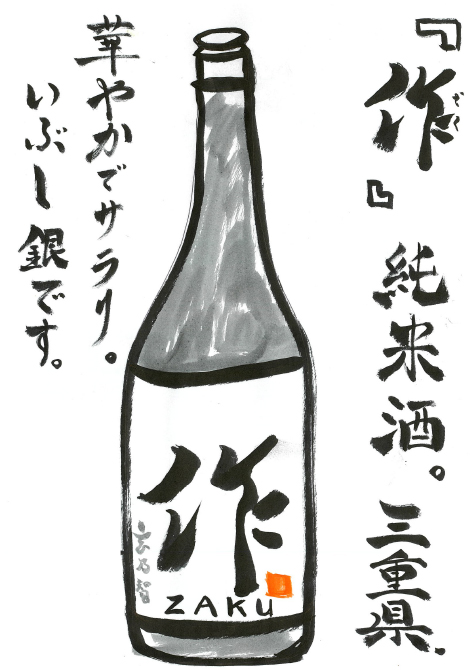 『作』純米酒。三重県.
ざく
華やかでサラリ。
いぶし銀です。
作
ZAKU